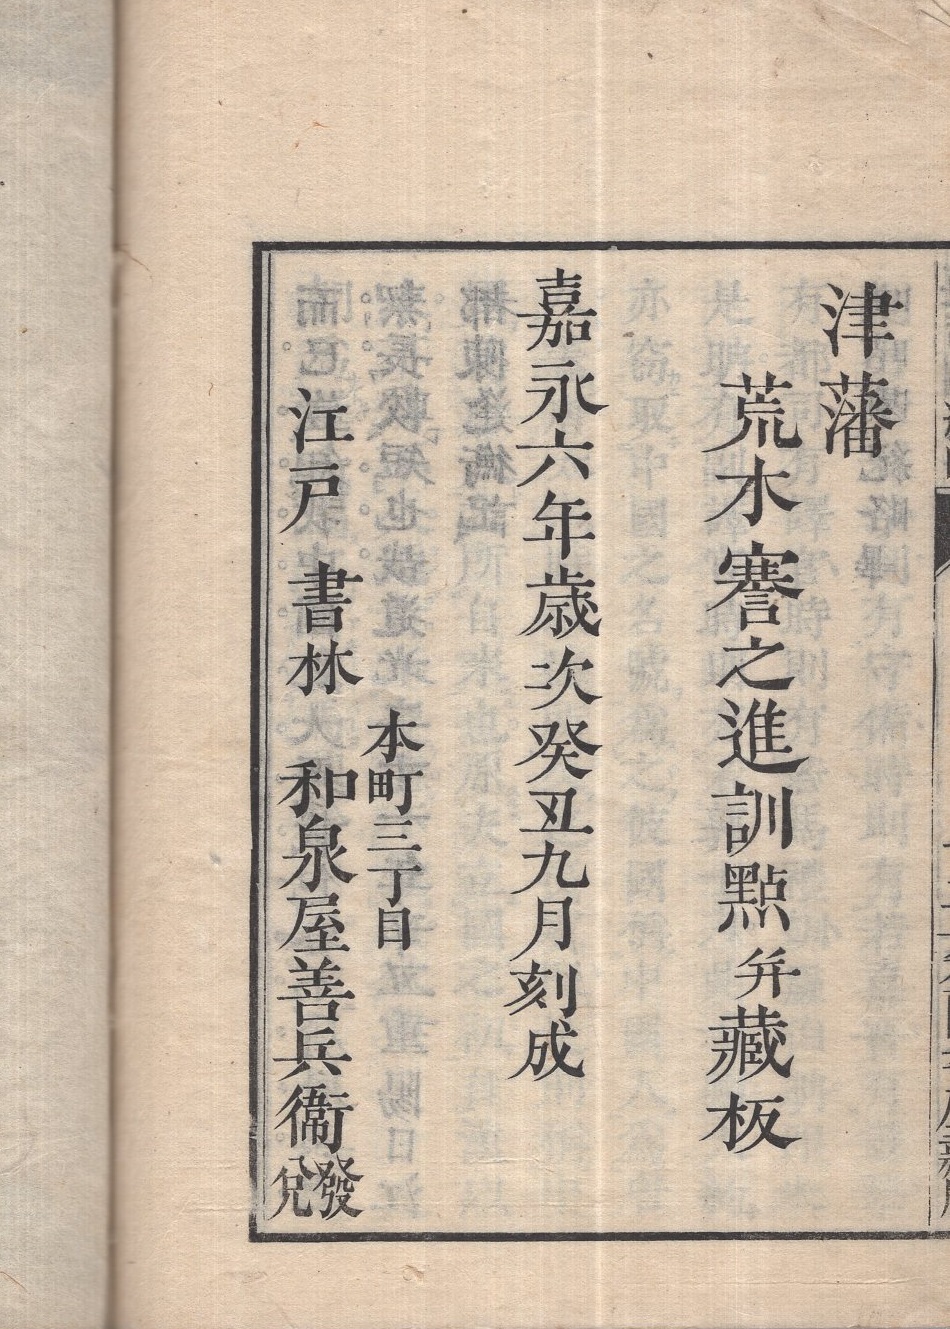 津藩
荒木謇之進訓點并藏板
嘉永六年歳次癸丑九月刻成
本町三丁目
江戸 書林 和泉屋善兵衞 發兌